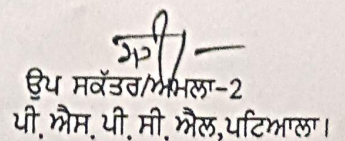 ਉਪ ਸਕੱਤਰ/ਅਮਲਾ-2
ਪੀ. ਐਸ. ਪੀ. ਸੀ. ਐਲ,ਪਟਿਆਲਾ।